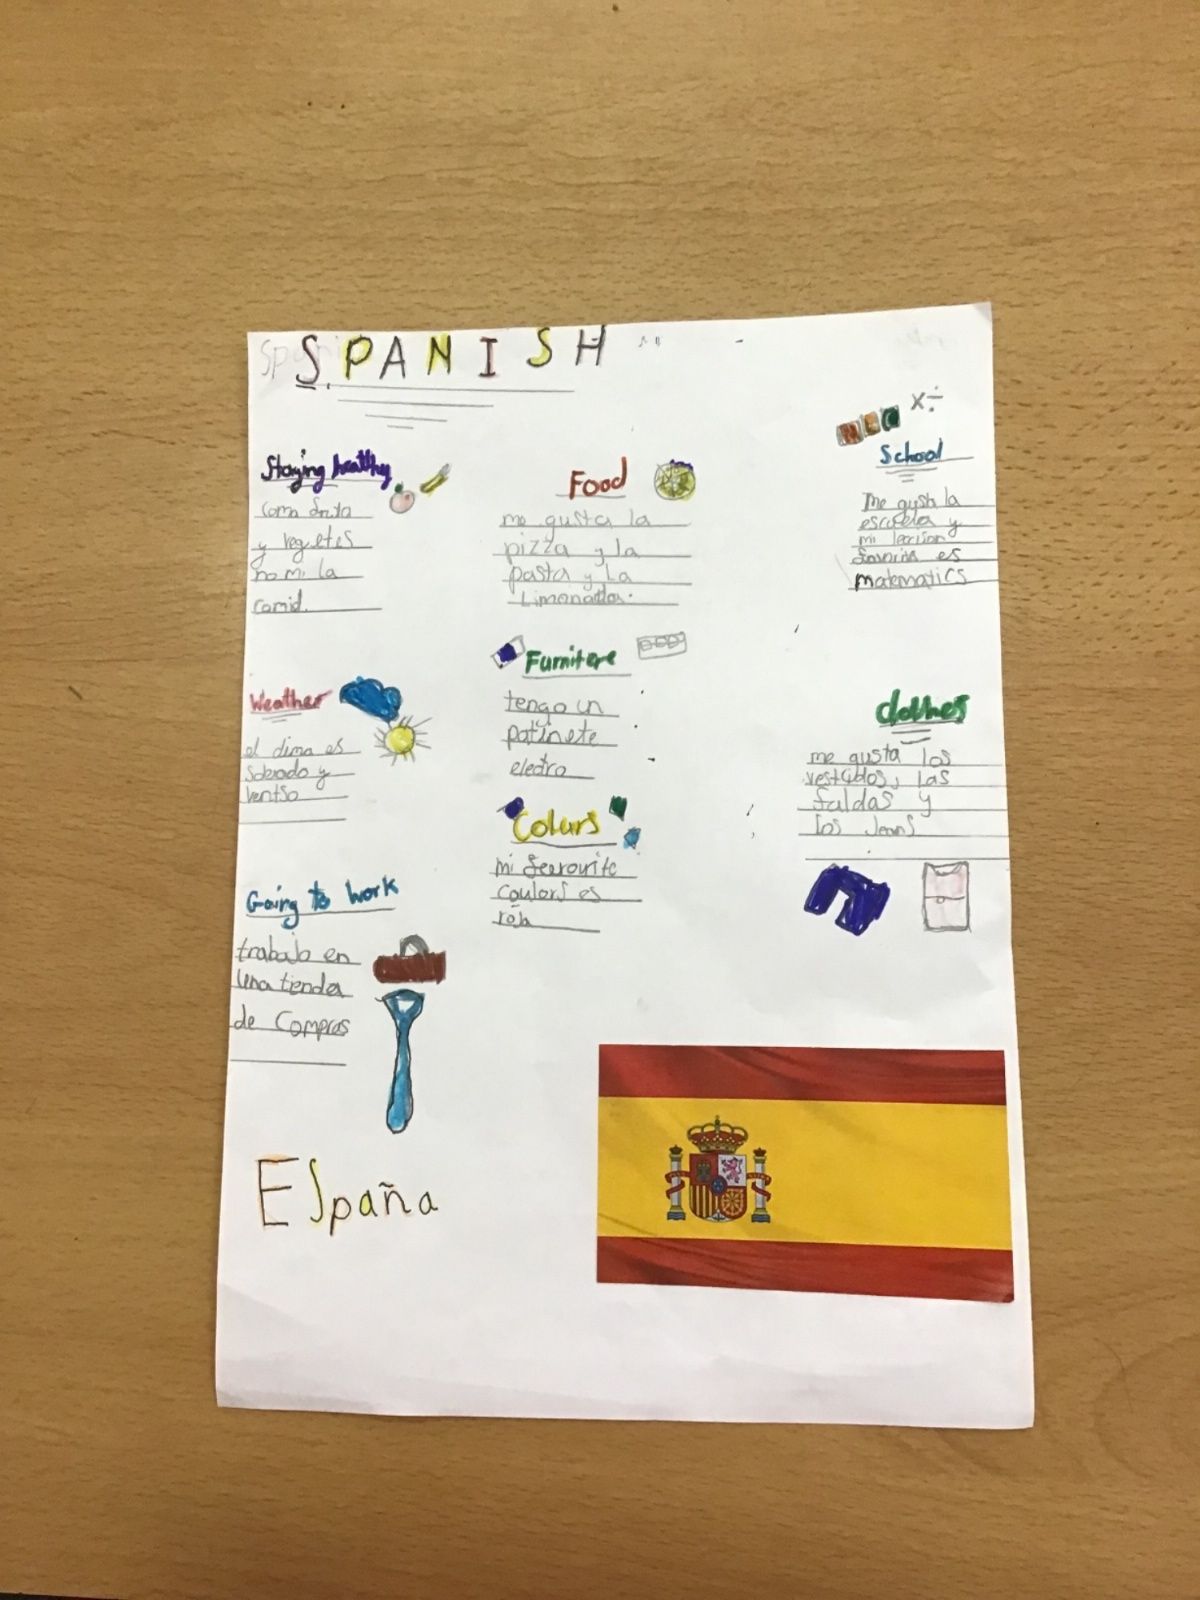 SPANISH
Staying healthy
y
no mi la
comid.
Weather
el dima es
y
Going to work
trabajo en
una tienda
de Compras
España
Food
me gusta la
pizza y la
pasta y La
Furniture
tengo un
patinete
electro
Colurs
mi
coulors es
x÷
School
Me gusta la
escuela y
mi
es
matematics
clothes
me gusta los
vestidos, las
faldas y
los Jeans